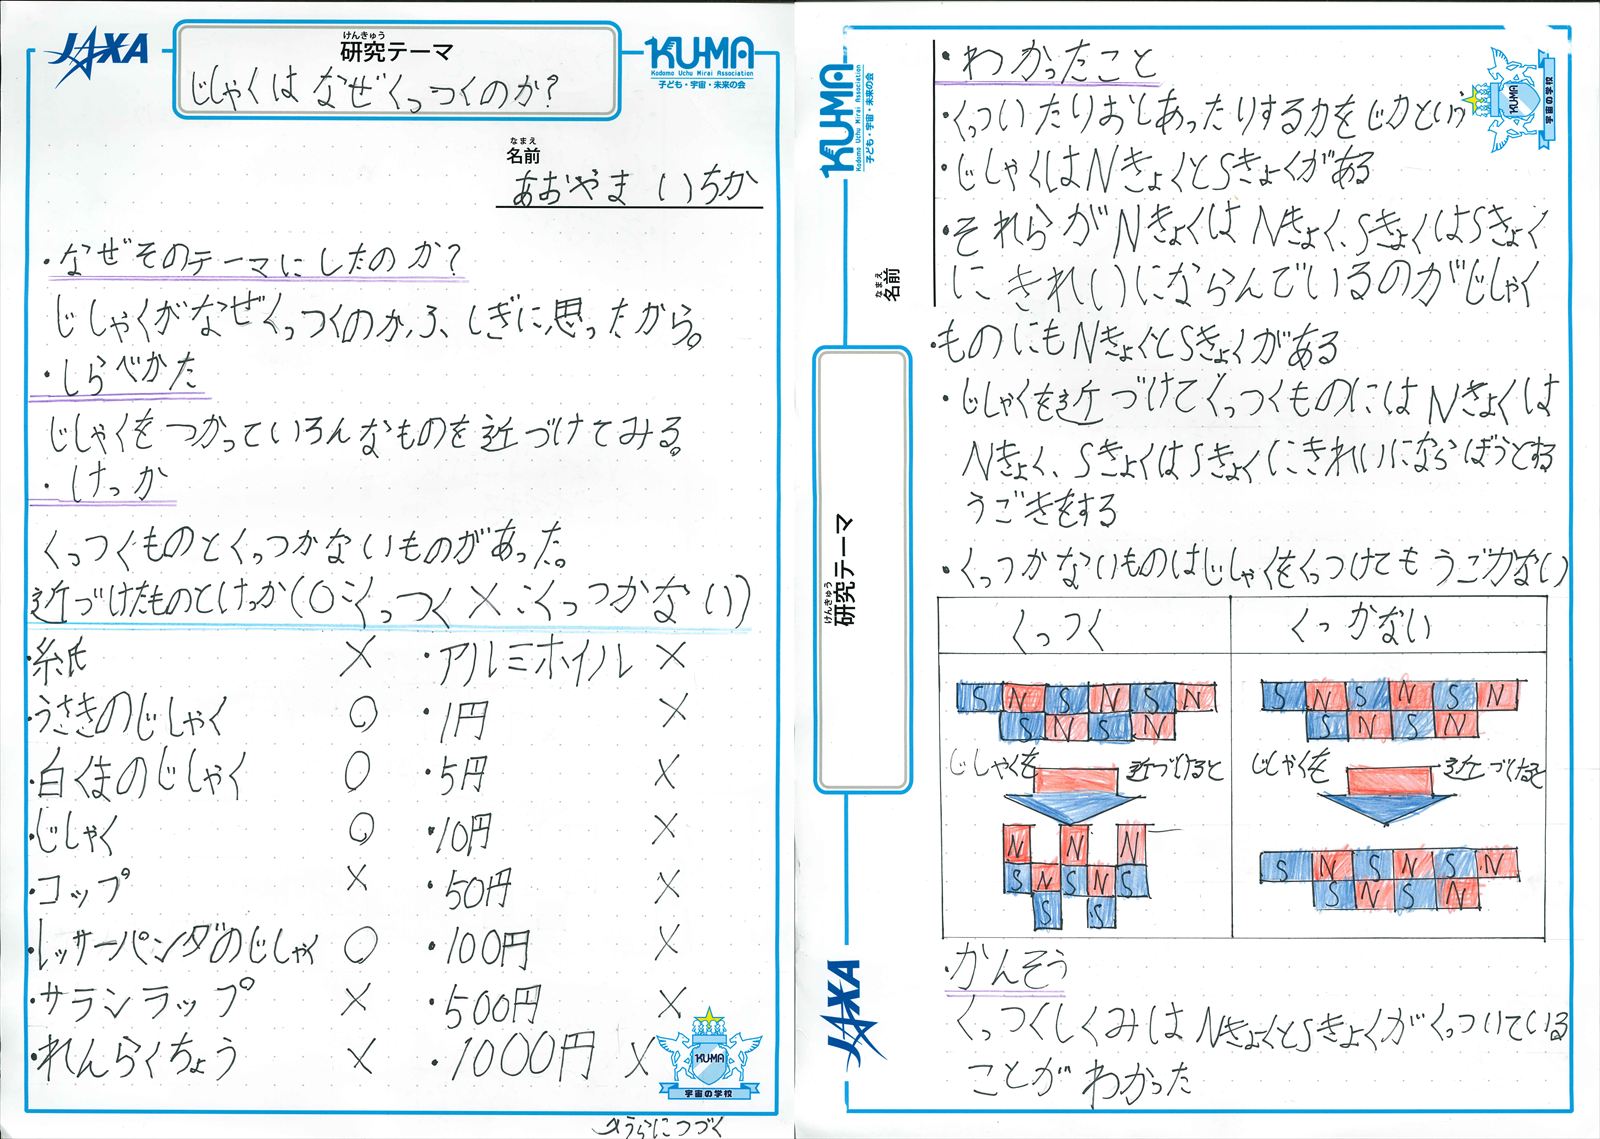 JAXA
けんきゅう
研究テーマ
じしゃくはなぜくっつくのか?
KU-MA
Kodomo Uchu Mirai Association
子ども・宇宙・未来の会
なまえ
名前
あおやま いちか
・なぜそのテーマにしたのか?
じしゃくがなぜくっつくのか、ふしぎに思ったから。
・しらべかた
じしゃくをつかっていろんなものを近づけてみる。
・けっか
くっつくものとくっつかないものがあった。
近づけたものとけっか(○:くっつく ×:くっつかない)
・紙 ×
・うさきのじしゃく ○
・白くまのじしゃく ○
・じしゃく ○
・コップ ×
・レッサーパンダのじしゃく ○
・サランラップ ×
・れんらくちょう ×
・アルミホイル ×
・1円 ×
・5円 ×
・10円 ×
・50円 ×
・100円 ×
・500円 ×
・1000円 ×
KU-MA
宇宙の学校
うらにつづく
・わかったこと
・くっついたりおしあったりする力をじ力という
・じしゃくはNきょくとSきょくがある
・それらがNきょくはNきょく、SきょくはSきょく
にきれいにならんでいるのがじしゃく
・ものにもNきょくとSきょくがある
・じしゃくを近づけてくっつくものにはNきょくは
Nきょく、SきょくはSきょくにきれいにならぼうとする
うごきをする
・くっつかないものはじしゃくをくっつけてもうごかない
くっつく
S N S N S N
S N S N
じしゃくを 近づけると
N N N
S N S N S
S S
くっかない
S N S N S N
S N S N
じしゃくを 近づけると
S N S N S N
S N S N
・かんそう
くっつくしくみはNきょくとSきょくがくっついている
ことがわかった
KU-MA
Kodomo Uchu Mirai Association
子ども・宇宙・未来の会
なまえ
名前
けんきゅう
研究テーマ
JAXA
KU-MA
宇宙の学校